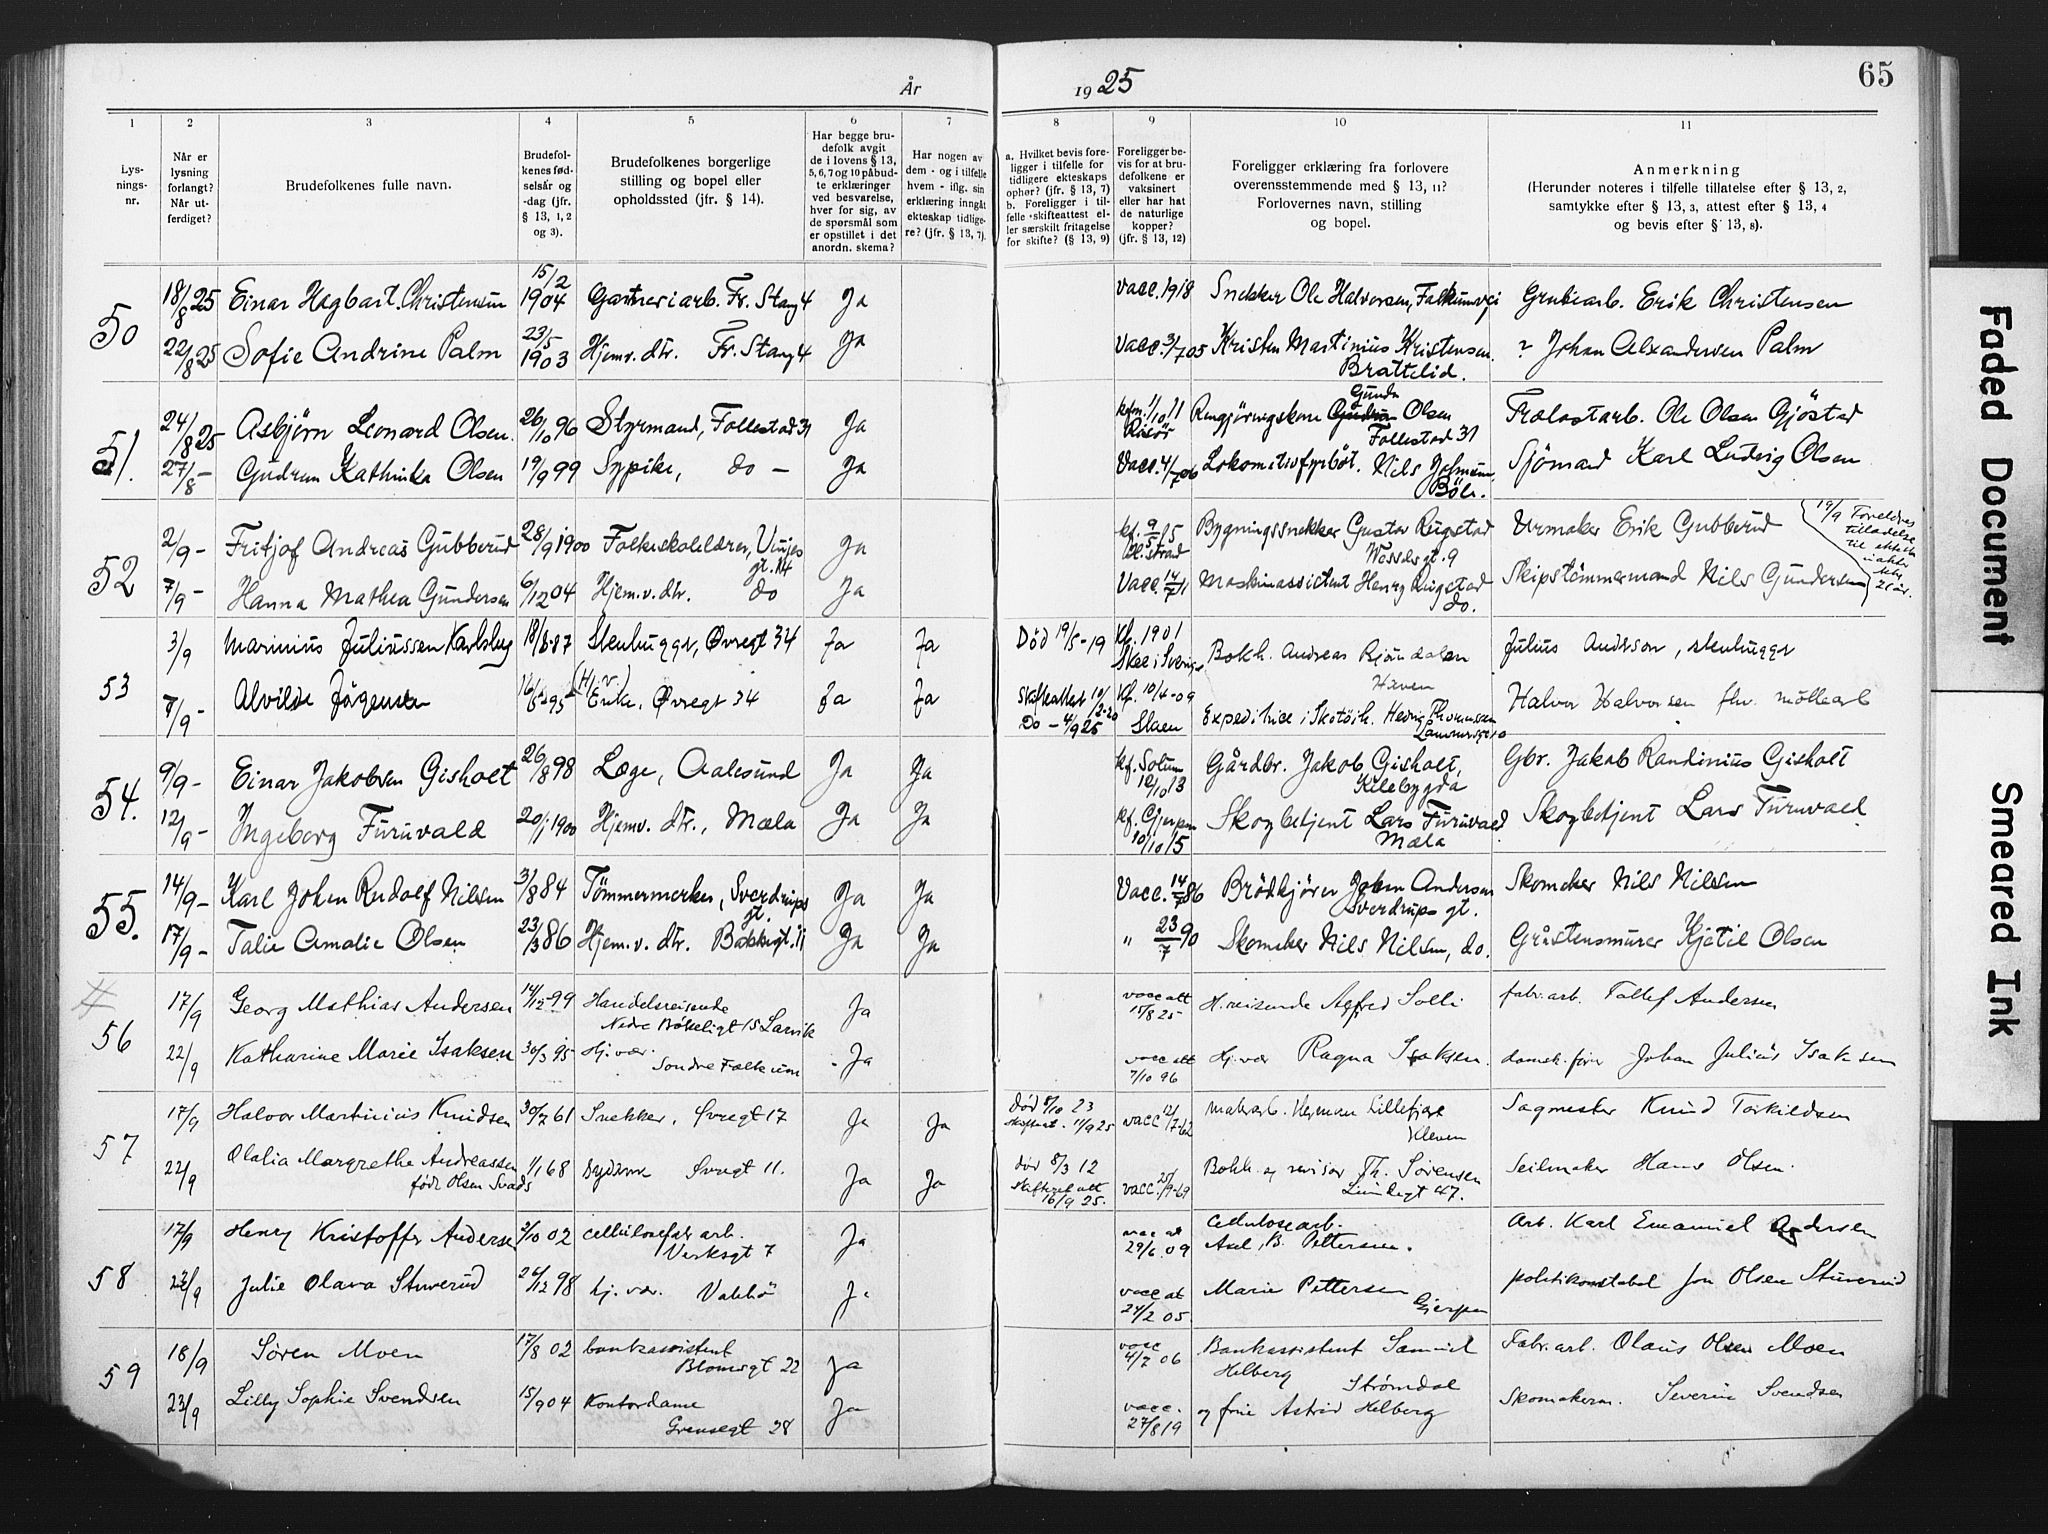 År 1925
65
1 2 3 4 5 6 7 8 9 10 11
Lys-
nings-
nr.
Når er
lysning
forlangt?
Når ut-
ferdiget?
Brudefolkenes fulle navn.
Brudefol-
kenes fød-
selsår og
-dag (jfr.
§ 13, 1, 2
og 3).
Brudefolkenes borgerlige
stilling og bopel eller
opholdssted (jfr. § 14).
Har begge bru-
defolk avgit
de i lovens § 13,
5, 6, 7 og 10 påbud-
te erklæringer
ved besvarelse,
hver for sig, av
de spørsmål som
er opstillet i det
anordn. skema?
Har nogen av
dem - og i tilfelle
hvem - iflg. sin
erklæring inngåt
ekteskap tidlige-
re? (jfr. § 13, 7).
a. Hvilket bevis fore-
ligger i tilfelle for
tidligere ekteskaps
ophør? (jfr. § 13, 7)
b. Foreligger i til-
felle skifteattest el-
ler særskilt fritagelse
for skifte? (§ 13, 9)
Foreligger be-
vis for at bru-
defolkene er
vaksinert
eller har hat
de naturlige
kopper?
(jfr. § 13, 12)
Foreligger erklæring fra forlovere
overensstemmende med § 13, 11?
Forlovernes navn, stilling
og bopel.
Anmerkning
(Herunder noteres i tilfelle tillatelse efter § 13, 2,
samtykke efter § 13, 3, attest efter § 13, 4
og bevis efter § 13, 8).
50 18/8 25 Einar Hagbart. Christensen 15/2 1904 Gartneriarb. Fr. Stang 4 Ja vacc. 1918 Snekker Ole Halvorsen, Falkumvei Grubearb. Erik Christensen
22/8 25 Sofie Andrine Palm 23/5 1903 Hjemv. dtr. Fr. Stang 4 Ja Vacc. 3/7 05 Kristen Martinius Kristensen. ? Johan Alexandersen Palm
Brattelid.
51. 24/8 25 Asbjørn Leonard Olsen. 26/10 96 Styrmand, Follestad 31 Ja kfm. 1/10 11 Risør Rengjøringskone Gunda Olsen Trælastarb. Ole Olsen Gjöstad
Follestad 31
27/8 - Gudrun Kathinka Olsen 19/9 99 Sypike, do - Ja Vacc. 4/7 06 Lokomotivfyrböt. Nils Johnsen, Sjömand Karl Ludvig Olsen
Böle.
52 2/9 - Fritjof Andreas Gubberud 28/9 1900 Folkeskolelærer, Vinjes Ja kf. 9/5 15 Bygningssnekker Gustav Rugstad Urmaker Erik Gubberud
gt. 14 Wesselsgt. 9
7/9 - Hanna Mathea Gundersen 6/12 04 Hjem. v. dtr. do Ja Vacc. 14/7 11 Maskinassistent Henry Rugstad Skipstömmermand Nils Gundersen
do.
19/9 Foreldres
tilladelse
til ekteskap
21 år.
53 3/9 Marinius Juliussen Karlsberg 18/8-87 Stenhugger, Øvregt 34 Ja Ja Død 19/5-19 Kf. 1901 Bokh. Andreas Bjöndalen Julius Anderson, stenhugger
Skee i Sverige
7/9 - Alvilde Jörgensen 95 (Hj. v.) Enke, Øvregt 34 Ja Ja Skifteattest 10/2-20 Kf. 10/4-09 Expeditrice i Skotöih. Hedvig Thomassen Halvor Halvorsen fhv. möllearb
Do - 4/9 25
54. 9/9 - Einar Jakobsen Gisholt 26/8 98 Læge, Aalesund Ja Ja kf. Solum Gårdbr. Jakob Gisholt, Gbr. Jakob Randinius Gisholt
10/10 13 Kilebygda
12/9 - Ingeborg Furuvald 20/1 1900 Hjemv. dtr., Mæla Ja Ja kf. Gjerpen Skogbetjent Lars Furuvald. Skogbetjent Lars Furuvald
10/10 15 Mæla
55. 14/9 - Karl Johan Rudolf Nilsen 3/8 84 Tömmermerker, Sverdrups Ja Ja Vacc. 14/7 86 Brödkjörer Johan Andersen Skomaker Nils Nilsen
gt. Sverdrups gt.
17/9 - Talie Amalie Olsen 23/3 86 Hjem. v. dtr. Bakkegt. 11 Ja Ja " 23/7 90 Skomaker Nils Nilsen, do. Gråstensmurer Kjetil Olsen
56 17/9 Georg Mathias Andersen 14/12-99 Handelsreisende Ja vacc att H. reisende Alfred Solli fabr. arb. Tollef Andersen
Nedre Bökeligt 15 Larvik 15/8 25
22/9 Katharine Marie Isaksen 30/3 95 Hj. vær. Ja vacc att Hj. vær Ragna Isaksen. Johan Julius Isaksen
Søndre Falkum 7/10 96
57 17/9 Halvor Martinius Knudsen 30/7 61 Snekker. Øvregt 17 Ja Ja død 8/10 23 vacc 12/7-62 Murarb. Herman Lillefjære Sagmester Knud Torkildsen
11/9 25 Kleven
22/9 Olalia Margrethe Andreassen 1/1 68 Sydame Øvregt 11. Ja Ja død 8/3 12 vacc. 25/9-69 Bokh. og revisor Th. Sørensen Seilmaker Hans Olsen.
født Olsen Svads Skifteret att 16/9 25. Lundegt 47.
58 17/9 Henry Kristoffer Andersen 3/10 02 cellulosefabr arb. Ja vacc at Celulosearb. Arb. Karl Emanuel Andersen
Verksgt 7 29/6 09 Axel, B. Pettersen.
22/9 Julie Olava Stuverud 26/12 98 hj. vær. Vabbö Ja vacc at Marie Pettersen politikonstabel Jon Olsen Stuverud
24/2 05. Gjerpen
59 18/9 Søren Moen 17/8 02 bankassistent Ja vacc Bankassistent Samuel Fabr. arb. Olaus Olsen Moen
Blomsgt 22 4/7 06 Helberg Strømdal
23/9 Lilly Sophie Svendsen 15/9 04 Kontordame Ja vacc. og frue Astrid Helberg Skomakerm. Severin Svendsen
Grensegt 28 27/8 19
Faded Document
Smeared Ink